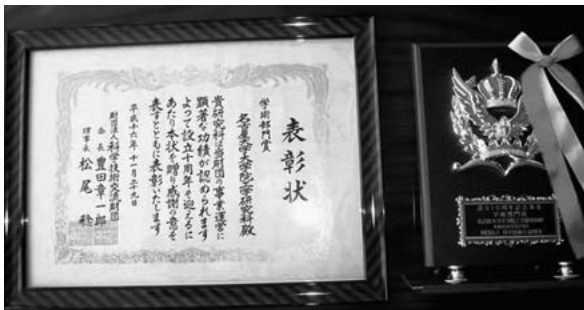 表彰状
学術部門賞
名古屋大学大学院工学研究科殿
貴研究科は当財団の事業運営に
顕著な功績が認められます
よって設立十周年を迎えるに
あたり本状を贈り感謝の意を
表すとともに表彰いたします
平成十六年十一月二十九日
財団法人科学技術交流財団
会長 豊田章一郎
理事長 松尾 稔
学術部門賞